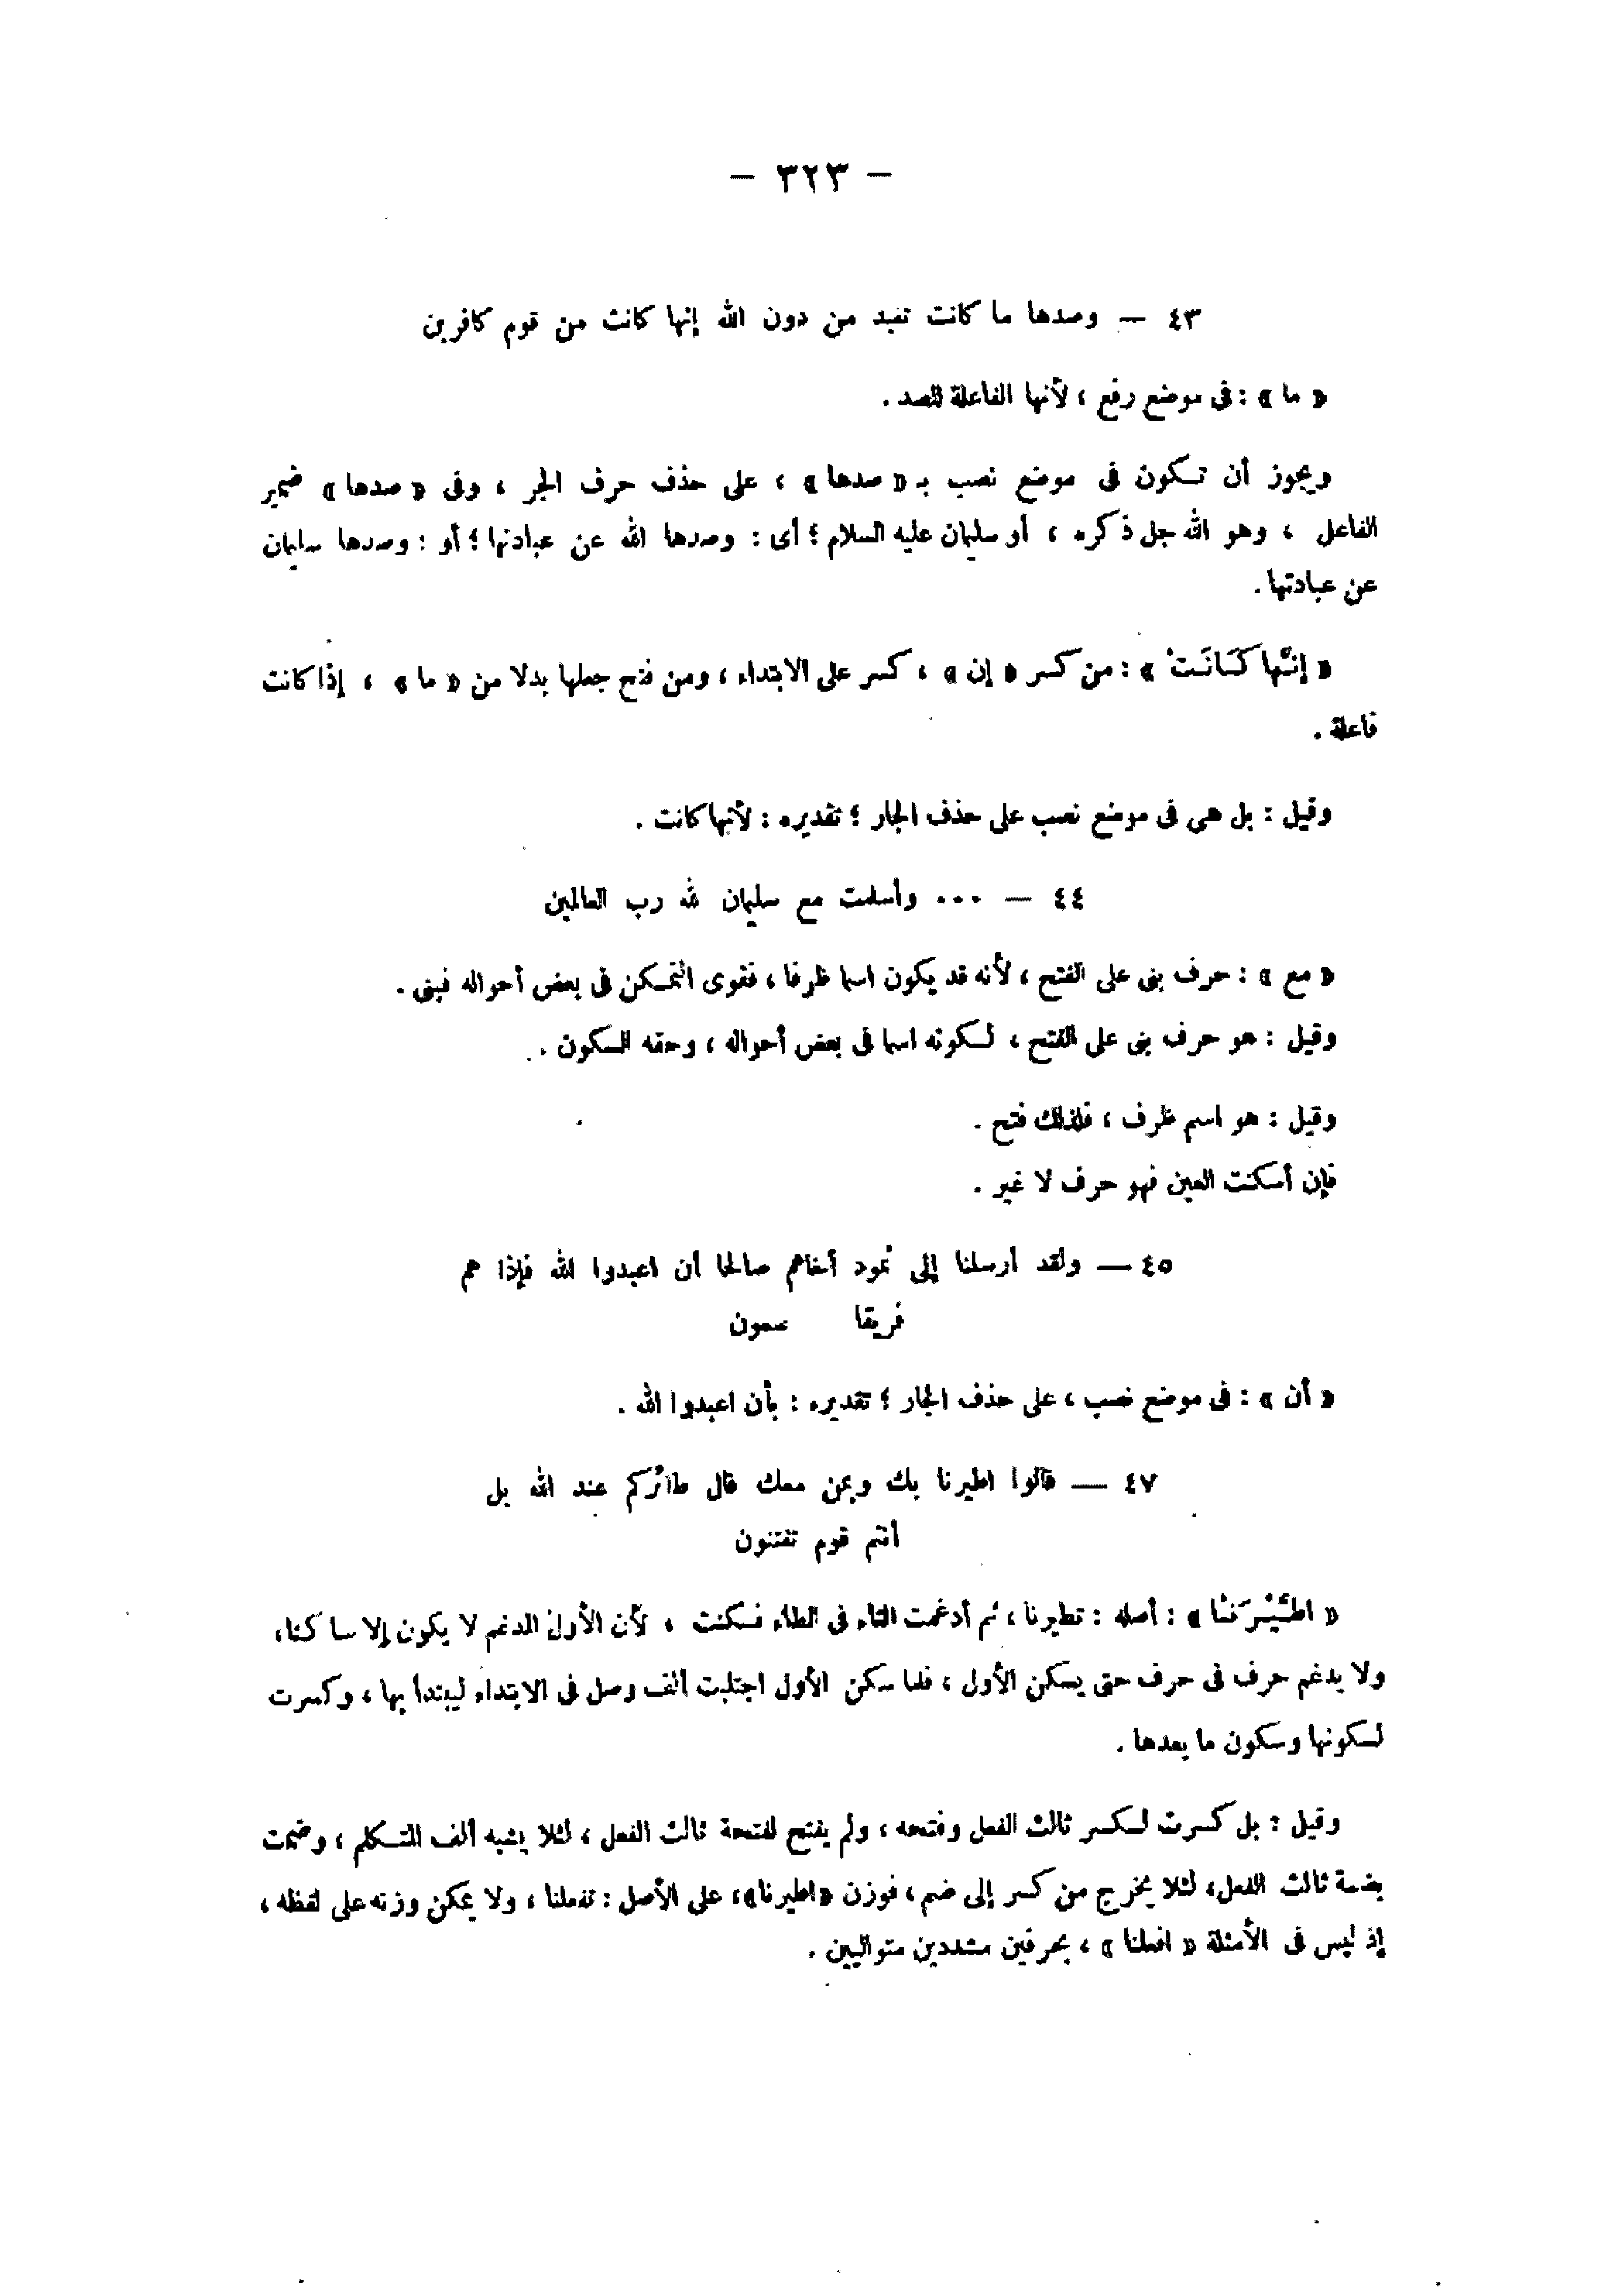 — ٣٢٣ —
٤٣ — وصدها ما كانت تعبد من دون الله إنها كانت من قوم كافرين
« ما » : فى موضع رفع ، لأنها الفاعلة للصد .
ويجوز أن تكون فى موضع نصب بـ « صدها » ، على حذف حرف الجر ، وفى « صدها » ضمير
الفاعل ، وهو الله جل ذكره ، أو سليمان عليه السلام ؛ أى : وصدها الله عن عبادتها ؛ أو : وصدها سليمان
عن عبادتها .
« إِنَّها كَانَتْ » : من كسر « إن » ، كسر على الابتداء ، ومن فتح جعلها بدلا من « ما » ، إذا كانت
فاعلة .
وقيل : بل هى فى موضع نصب على حذف الجار ؛ تقديره : لأنها كانت .
٤٤ — ... وأسلمت مع سليمان لله رب العالمين
« مع » : حرف بنى على الفتح ، لأنه قد يكون اسما ظرفا ، فقوى التمكن فى بعض أحواله فبنى .
وقيل : هو حرف بنى على الفتح ، لكونه اسما فى بعض أحواله ، وحقه السكون .
وقيل : هو اسم ظرف ، فلذلك فتح .
فإن أسكنت العين فهو حرف لا غير .
٤٥ — ولقد أرسلنا إلى ثمود أخاهم صالحا أن اعبدوا الله فإذا هم
فريقا
« أن » : فى موضع نصب ، على حذف الجار ؛ تقديره : بأن اعبدوا الله .
٤٧ — قالوا اطيرنا بك وبمن معك قال طائركم عند الله بل
أنتم قوم تفتنون
« اطَّيَّرْنَا » : أصله : تطيرنا ، ثم أدغمت التاء فى الطاء فسكنت ، لأن الأول المدغم لا يكون إلا ساكنا ،
ولا يدغم حرف فى حرف حتى يسكن الأول ، فلما سكن الأول اجتلبت ألف وصل فى الابتداء ليبتدأ بها ، وكسرت
لسكونها وسكون ما بعدها .
وقيل : بل كسرت لكسر ثالث الفعل وفتحه ، ولم يفتح لفتحة ثالث الفعل ، لئلا يشبه ألف المتكلم ، وضمت
بضمة ثالث الفعل ، لئلا يخرج من كسر إلى ضم ، فوزن « اطيرنا » ، على الأصل : تفعلنا ، ولا يمكن وزنه على لفظه ،
إذ ليس فى الأمثلة « افعلنا » ، بحرفين مشددين متواليين .